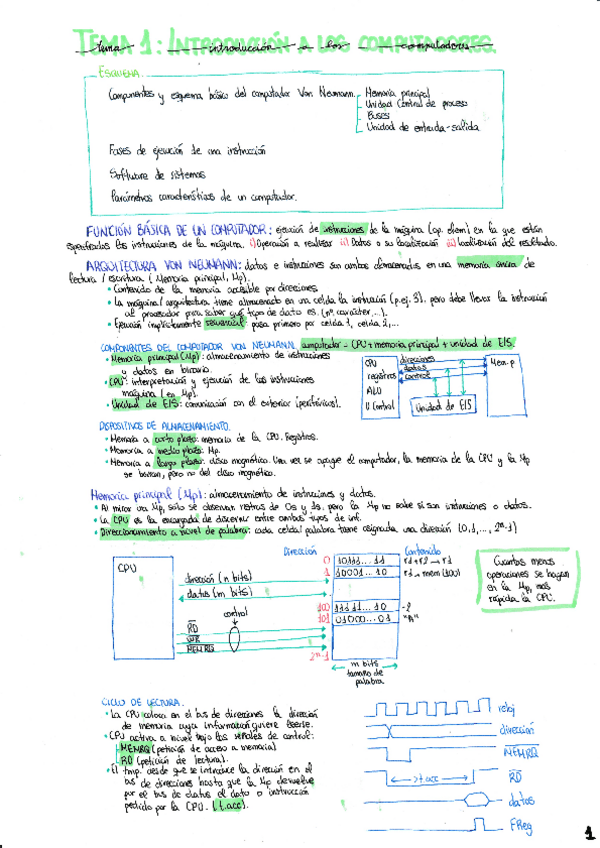 TEMA 1: INTRODUCCIÓN A LOS COMPUTADORES.
Tema introducción a los computadores
ESQUEMA
Componentes y esquema básico del computador Von Neumann.
Memoria principal
Unidad Control de proceso
Buses
Unidad de entrada-salida
Fases de ejecución de una instrucción
Software de sistemas
Parámetros característicos de un computador.
FUNCIÓN BÁSICA DE UN COMPUTADOR: ejecución de instrucciones de la máquina (op. elem) en la que están
especificadas las instrucciones de la máquina. i) Operación a realizar ii) Datos o su localización iii) localización del resultado.
ARQUITECTURA VON NEUMANN: datos e instrucciones son ambos almacenados en una memoria única de
lectura / escritura (Memoria principal, Mp).
• Contenido de la memoria accesible por direcciones
• La máquina/arquitectura tiene almacenado en una celda la instrucción (p.ej. 3). pero debe llevar la instrucción
al procesador para saber qué tipo de dato es. (nº, carácter,...).
• Ejecución implícitamente secuencial: pasa primero por celda 1, celda 2,...
COMPONENTES DEL COMPUTADOR VON NEUMANN computador = CPU + memoria principal + unidad de E/S.
• Memoria principal (Mp): almacenamiento de instrucciones
y datos en binario.
• CPU: interpretación y ejecución de las instrucciones
máquina (en Mp).
• Unidad de E/S: comunicación con el exterior (periféricos).
CPU
registros
ALU
U Control
direcciones
datos
control
Unidad de E/S
Mem. P
DISPOSITIVOS DE ALMACENAMIENTO.
• Memoria a corto plazo: memoria de la CPU. Registros.
• Memoria a medio plazo: Mp.
• Memoria a largo plazo: disco magnético. Una vez se apague el computador, la memoria de la CPU y la Mp
se borran, pero no del disco magnético.
Memoria principal (Mp): almacenamiento de instrucciones y datos.
• Al mirar una Mp, sólo se observan ristras de 0s y 1s. pero la Mp no sabe si son instrucciones o datos.
• La CPU es la encargada de discernir entre ambos tipos de inf.
• Direccionamiento a nivel de palabra: cada celda/palabra tiene asignada una dirección (0,1,..., 2ⁿ-1)
Dirección Contenido
CPU
dirección (n bits)
datos (m bits)
control
RD
WR
MEMRQ
0 10111...11 r1+r2→r1
1 10001...10 r1→mem(100)
100 11111...10 -2
101 01000...01 "A"
2ⁿ-1
m bits
tamaño de
palabra
Cuantas menos
operaciones se hagan
en la Mp, más
rápida la CPU.
CICLO DE LECTURA.
• La CPU coloca en el bus de direcciones la dirección
de memoria cuya información quiere leerse.
• CPU activa a nivel bajo las señales de control:
MEMRQ (petición de acceso a memoria)
RD (petición de lectura).
• El tmp. desde que se introduce la dirección en el
bus de direcciones hasta que la Mp devuelve
por el bus de datos el dato o instrucción
pedido por la CPU. (t.acc).
reloj
dirección
MEMRQ
t.acc
RD
datos
FReg
1